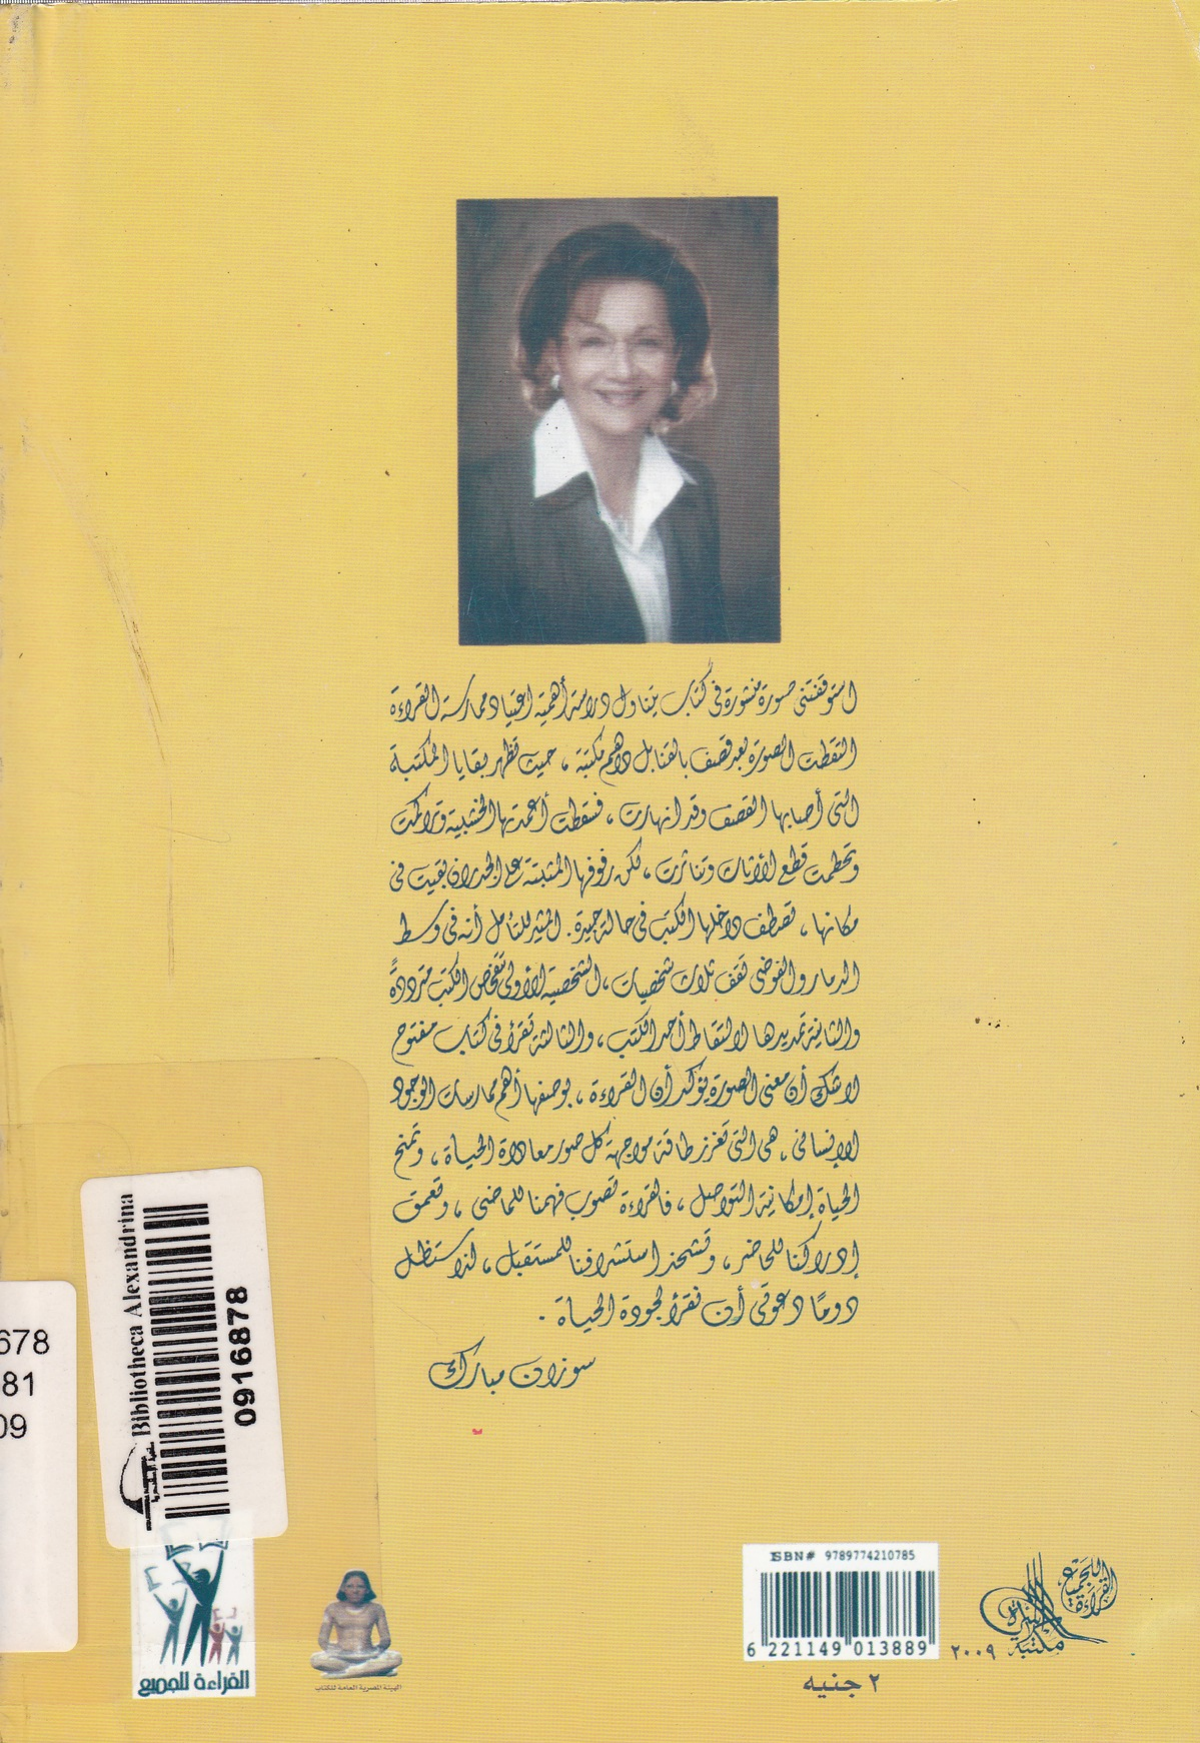 استوقفتنى صورة منشورة فى كتاب يتناول دراسة أهمية اعتياد ممارسة القراءة
التقطت الصورة بعد قصف بالقنابل داهم مكتبة ، حيث تظهر بقايا المكتبة
التى أصابها القصف وقد انهارت ، فسقطت أعمدتها الخشبية وتراكمت
وتحطمت قطع الأثاث وتناثرت ، لكن رفوفها المثبتة على الجدران بقيت فى
مكانها ، تصطف داخلها الكتب فى حالة جيدة . المثير للتأمل أنه فى وسط
الدمار والفوضى تقف ثلاث شخصيات ، الشخصية الأولى تتفحص الكتب مترددةً
والثانية تمد يدها لالتقاط أحد الكتب ، والثالثة تقرأ فى كتاب مفتوح
لاشك أن معنى الصورة يؤكد أن القراءة ، بوصفها أهم ممارسات الوجود
الإنسانى ، هى التى تعزز طاقة مواجهة كل صور معاداة الحياة ، وتمنح
الحياة إمكانية التواصل ، فالقراءة تصوب فهمنا للماضى ، وتعمق
إدراكنا للحاضر ، وتشحذ استشرافنا للمستقبل ، لذا ستظل
دومًا دعوتى أن نقرأ لجودة الحياة .
سوزان مبارك
Bibliotheca Alexandrina
0916878
678
81
09
القراءة للجميع
الهيئة المصرية العامة للكتاب
ISBN# 9789774210785
6 221149 013889
٢ جنيه
القراءة للجميع
مكتبة الأسرة
٢٠٠٩